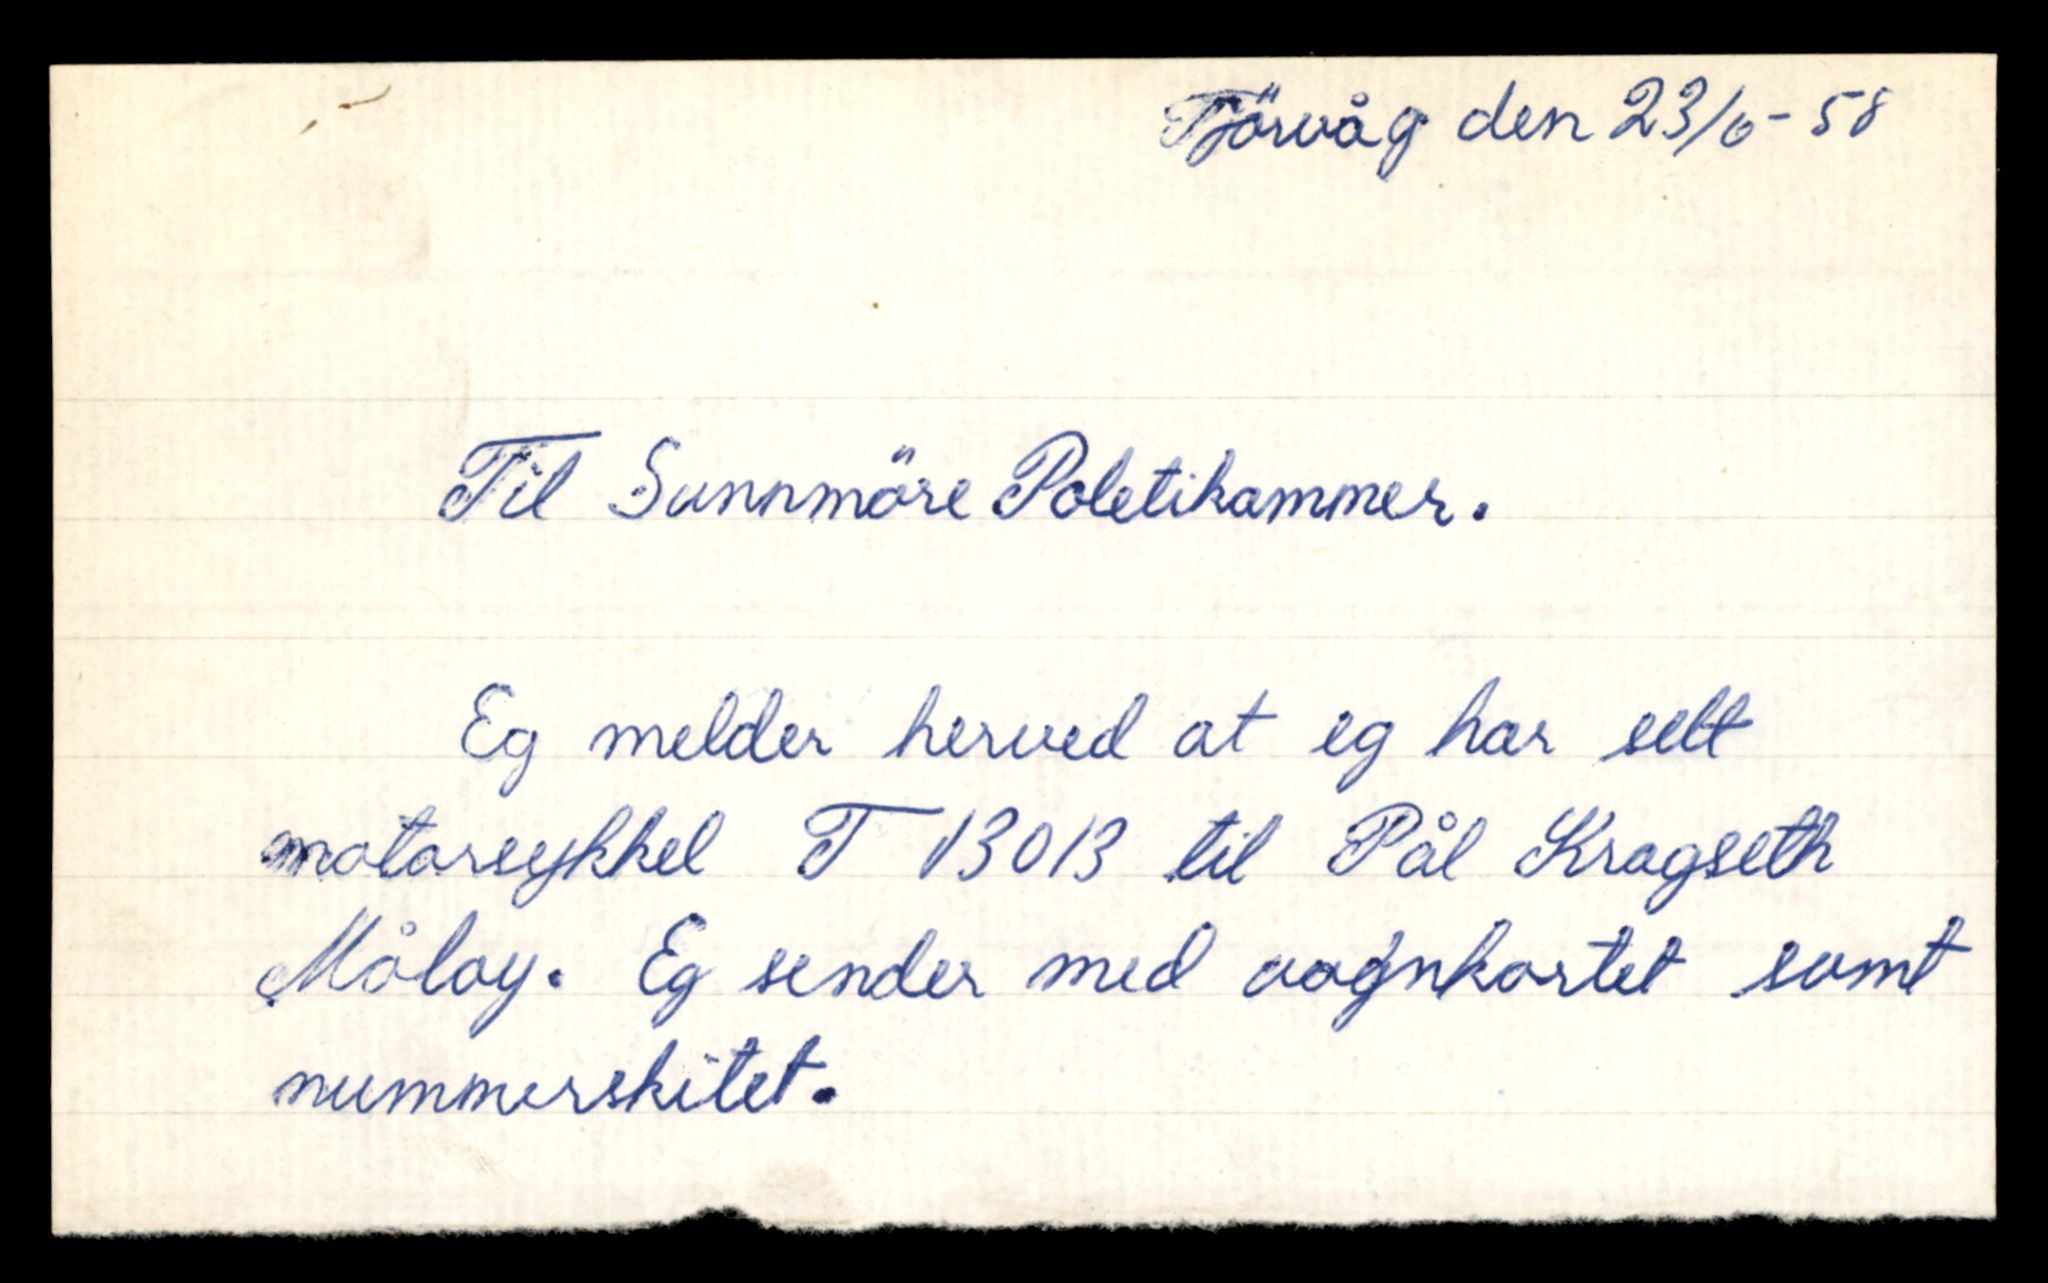 Tjörvåg den 23/6-58
Til Sunnmöre Poletikammer.
Eg melder herved at eg har selt
motorsykkel T 13013 til Pål Kragseth
Måloy. Eg sender med vognkortet samt
nummerskitet.